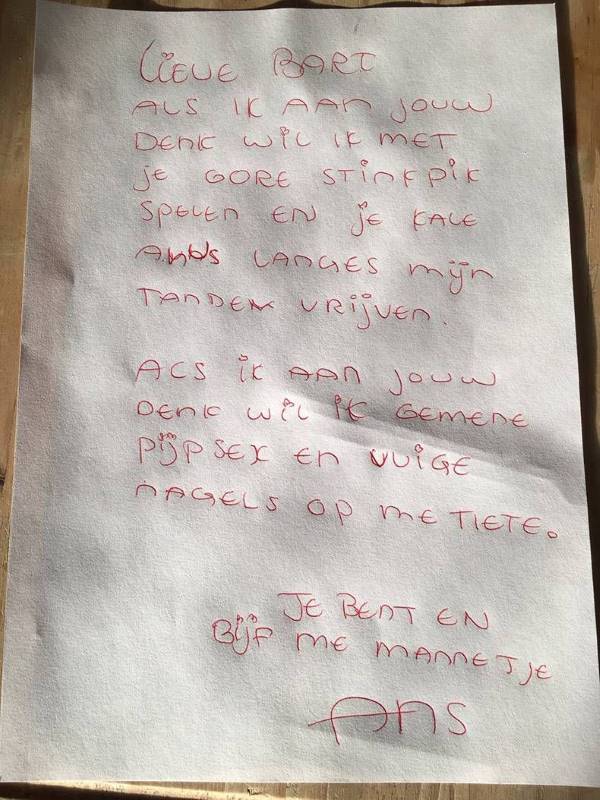 LIEVE BART
ALS IK AAN JOUW
DENK WIL IK MET
je GORE STINKPIK
SPELEN EN je KALE
ANUS LANGES MIJN
TANDEN VRIJVEN.
ALS IK AAN JOUW
DENK WIL IK GEMENE
PIJPSEX EN VUIGE
NAGELS OP ME TIETE.
JE BENT EN
BIJF ME MANNETJE
ANS